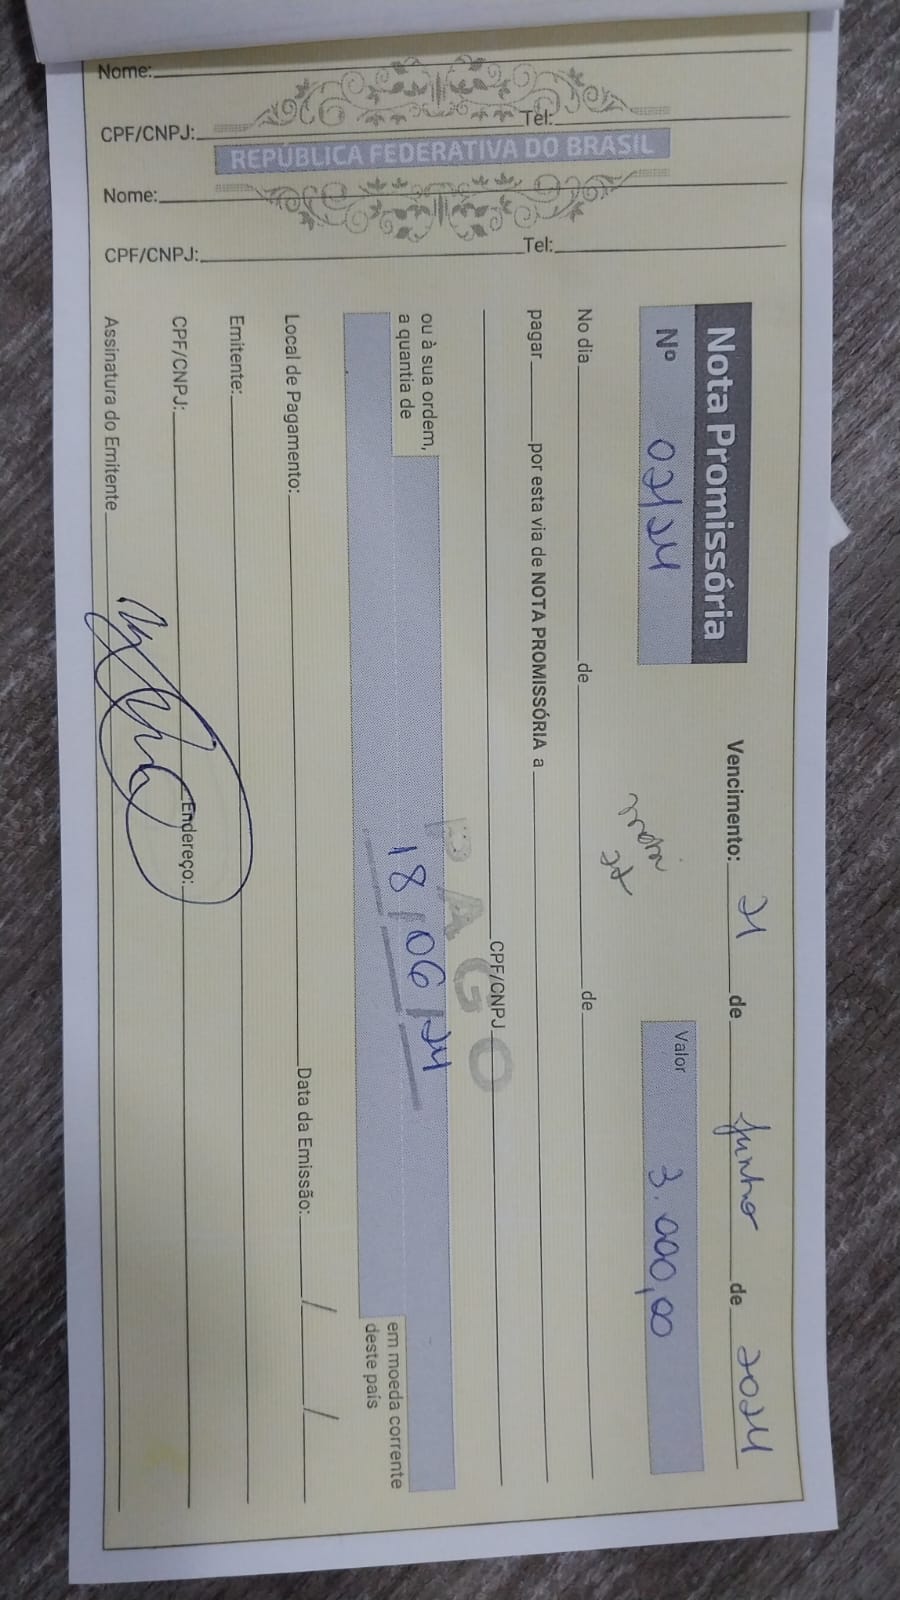 Nome:
CPF/CNPJ: Tel:
REPÚBLICA FEDERATIVA DO BRASIL
Nome:
CPF/CNPJ: Tel:
Nota Promissória
Vencimento: 21 de Junho de 2024
Nº 02/24
Valor 3.000,00
No dia de de
pagar por esta via de NOTA PROMISSÓRIA a
CPF/CNPJ
PAGO
ou à sua ordem,
a quantia de
18/06/24
em moeda corrente
deste país
Local de Pagamento: Data da Emissão: / /
Emitente:
CPF/CNPJ: Endereço:
Assinatura do Emitente